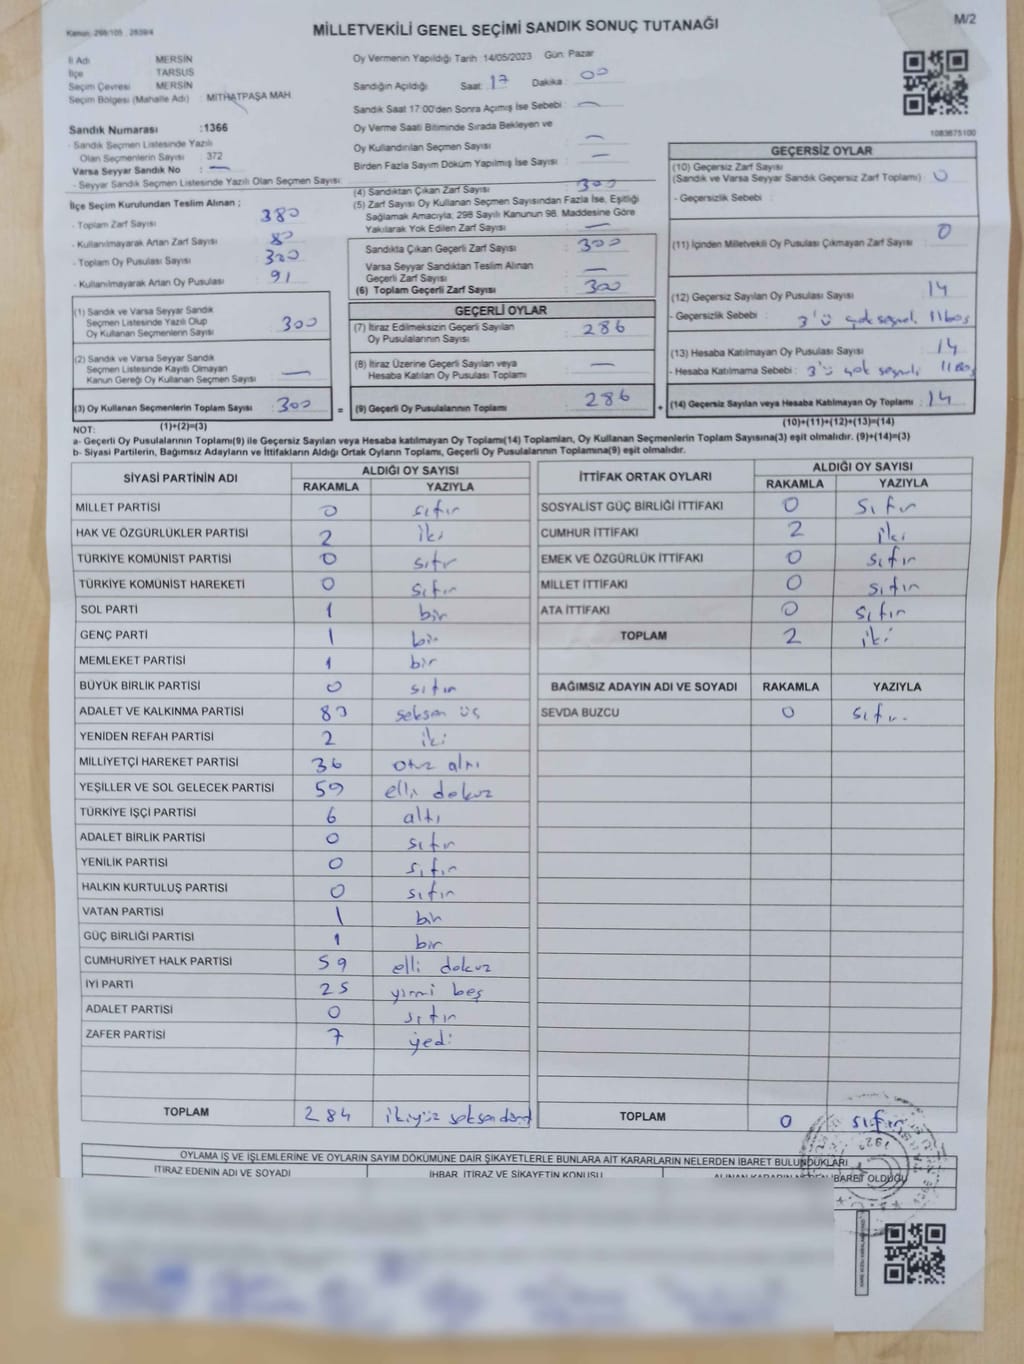 Kanun: 298/105 , 2839/4
MİLLETVEKİLİ GENEL SEÇİMİ SANDIK SONUÇ TUTANAĞI
M/2
İl Adı MERSİN
İlçe TARSUS
Seçim Çevresi MERSİN
Seçim Bölgesi (Mahalle Adı) : MİTHATPAŞA MAH.
Oy Vermenin Yapıldığı Tarih :14/05/2023 Gün: Pazar
Sandığın Açıldığı Saat : 17 Dakika : 00
Sandık Saat 17:00'den Sonra Açımış İse Sebebi : —
Oy Verme Saati Bitiminde Sırada Bekleyen ve
Oy Kullandırılan Seçmen Sayısı : —
Birden Fazla Sayım Döküm Yapılmış İse Sayısı : —
Sandık Numarası :1366
- Sandık Seçmen Listesinde Yazılı
Olan Seçmenlerin Sayısı : 372
Varsa Seyyar Sandık No : —
- Seyyar Sandık Seçmen Listesinde Yazılı Olan Seçmen Sayısı:
İlçe Seçim Kurulundan Teslim Alınan ;
- Toplam Zarf Sayısı : 380
- Kullanılmayarak Artan Zarf Sayısı : 80
- Toplam Oy Pusulası Sayısı :
- Kullanılmayarak Artan Oy Pusulası : 91
(1) Sandık ve Varsa Seyyar Sandık
Seçmen Listesinde Yazılı Olup
Oy Kullanan Seçmenlerin Sayısı : 300
(2) Sandık ve Varsa Seyyar Sandık
Seçmen Listesinde Kayıtlı Olmayan
Kanun Gereği Oy Kullanan Seçmen Sayısı : —
(3) Oy Kullanan Seçmenlerin Toplam Sayısı : 300
(1)+(2)=(3)
(4) Sandıktan Çıkan Zarf Sayısı : 300
(5) Zarf Sayısı Oy Kullanan Seçmen Sayısından Fazla İse, Eşitliği
Sağlamak Amacıyla, 298 Sayılı Kanunun 98. Maddesine Göre
Yakılarak Yok Edilen Zarf Sayısı : —
Sandıkta Çıkan Geçerli Zarf Sayısı : 300
Varsa Seyyar Sandıktan Teslim Alınan
Geçerli Zarf Sayısı : —
(6) Toplam Geçerli Zarf Sayısı : 300
GEÇERLİ OYLAR
(7) İtiraz Edilmeksizin Geçerli Sayılan
Oy Pusulalarının Sayısı : 286
(8) İtiraz Üzerine Geçerli Sayılan veya
Hesaba Katılan Oy Pusulası Toplamı : —
= (9) Geçerli Oy Pusulalarının Toplamı : 286
1083675100
GEÇERSİZ OYLAR
(10) Geçersiz Zarf Sayısı
(Sandık ve Varsa Seyyar Sandık Geçersiz Zarf Toplamı) : 0
- Geçersizlik Sebebi :
(11) İçinden Milletvekili Oy Pusulası Çıkmayan Zarf Sayısı : 0
(12) Geçersiz Sayılan Oy Pusulası Sayısı : 14
- Geçersizlik Sebebi : 3'ü çok seçmeli, 11 boş
(13) Hesaba Katılmayan Oy Pusulası Sayısı : 14
- Hesaba Katılmama Sebebi : 3'ü çok seçmeli 11 Boş
+ (14) Geçersiz Sayılan veya Hesaba Katılmayan Oy Toplamı : 14
(10)+(11)+(12)+(13)=(14)
NOT:
a- Geçerli Oy Pusulalarının Toplamı(9) ile Geçersiz Sayılan veya Hesaba katılmayan Oy Toplamı(14) Toplamları, Oy Kullanan Seçmenlerin Toplam Sayısına(3) eşit olmalıdır. (9)+(14)=(3)
b- Siyasi Partilerin, Bağımsız Adayların ve İttifakların Aldığı Ortak Oyların Toplamı, Geçerli Oy Pusulalarının Toplamına(9) eşit olmalıdır.
SİYASİ PARTİNİN ADI ALDIĞI OY SAYISI
RAKAMLA YAZIYLA
MİLLET PARTİSİ 0 sıfır
HAK VE ÖZGÜRLÜKLER PARTİSİ 2 iki
TÜRKİYE KOMÜNİST PARTİSİ 0 sıfır
TÜRKİYE KOMÜNİST HAREKETİ 0 sıfır
SOL PARTİ 1 bir
GENÇ PARTİ 1 bir
MEMLEKET PARTİSİ 1 bir
BÜYÜK BİRLİK PARTİSİ 0 sıfır
ADALET VE KALKINMA PARTİSİ 83 seksen üç
YENİDEN REFAH PARTİSİ 2 iki
MİLLİYETÇİ HAREKET PARTİSİ 36 otuz altı
YEŞİLLER VE SOL GELECEK PARTİSİ 59 elli dokuz
TÜRKİYE İŞÇİ PARTİSİ 6 altı
ADALET BİRLİK PARTİSİ 0 sıfır
YENİLİK PARTİSİ 0 sıfır
HALKIN KURTULUŞ PARTİSİ 0 sıfır
VATAN PARTİSİ 1 bir
GÜÇ BİRLİĞİ PARTİSİ 1 bir
CUMHURİYET HALK PARTİSİ 59 elli dokuz
İYİ PARTİ 25 yirmi beş
ADALET PARTİSİ 0 sıfır
ZAFER PARTİSİ 7 yedi
TOPLAM 284 ikiyüz seksendört
İTTİFAK ORTAK OYLARI ALDIĞI OY SAYISI
RAKAMLA YAZIYLA
SOSYALİST GÜÇ BİRLİĞİ İTTİFAKI 0 sıfır
CUMHUR İTTİFAKI 2 iki
EMEK VE ÖZGÜRLÜK İTTİFAKI 0 sıfır
MİLLET İTTİFAKI 0 sıfır
ATA İTTİFAKI 0 sıfır
TOPLAM 2 iki
BAĞIMSIZ ADAYIN ADI VE SOYADI RAKAMLA YAZIYLA
SEVDA BUZCU 0 sıfır.
TOPLAM 0 sıfır
OYLAMA İŞ VE İŞLEMLERİNE VE OYLARIN SAYIM DÖKÜMÜNE DAİR ŞİKAYETLERLE BUNLARA AİT KARARLARIN NELERDEN İBARET BULUNDUKLARI
İTİRAZ EDENİN ADI VE SOYADI İHBAR, İTİRAZ VE ŞİKAYETİN KONUSU İBARET OLDUĞU